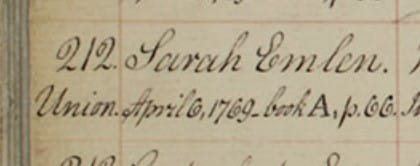 212. Sarah Emlen.
Union. April 6, 1769_ book A, p. 66.